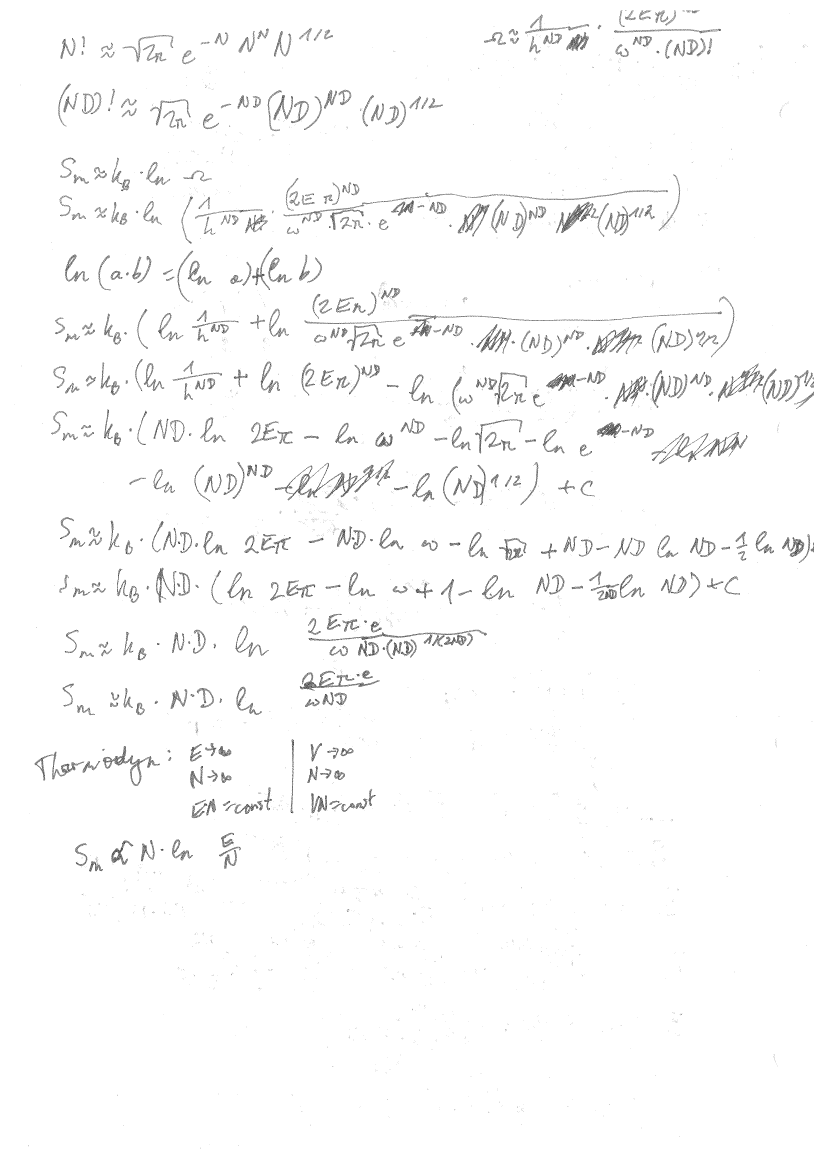 N! ≈ √2π e^-N N^N N^1/2
Ω ≈ 1/h^ND · (2Eπ) / ω^ND · (ND)!
(ND)! ≈ √2π e^-ND (ND)^ND · (ND)^1/2
S_m ≈ k_B · ln Ω
S_m ≈ k_B · ln (1/h^ND · (2Eπ)^ND / ω^ND · √2π · e^-ND · (ND)^ND (ND)^1/2)
ln (a·b) = (ln a)+(ln b)
S_m ≈ k_B · (ln 1/h^ND + ln (2Eπ)^ND / ω^ND √2π e^-ND · (ND)^ND · (ND)^1/2)
S_m ≈ k_B · (ln 1/h^ND + ln (2Eπ)^ND - ln (ω^ND √2π e^-ND · (ND)^ND · (ND)^1/2
S_m ≈ k_B · (ND · ln 2Eπ - ln ω^ND - ln √2π - ln e^-ND
- ln (ND)^ND - ln (ND)^1/2) + C
S_m ≈ k_B · (N·D · ln 2Eπ - N·D · ln ω - ln √2π + ND - ND ln ND - 1/2 ln ND)+
S_m ≈ k_B · N·D · (ln 2Eπ - ln ω + 1 - ln ND - 1/2ND ln ND) + C
S_m ≈ k_B · N·D · ln 2Eπ·e / ω ND·(ND)^1/(2ND)
S_m ≈ k_B · N·D · ln 2Eπ·e / ωND
Thermodyn: E→∞ | V→∞
N→∞ | N→∞
E/N = const | V/N = const
S_m ∝ N · ln E/N